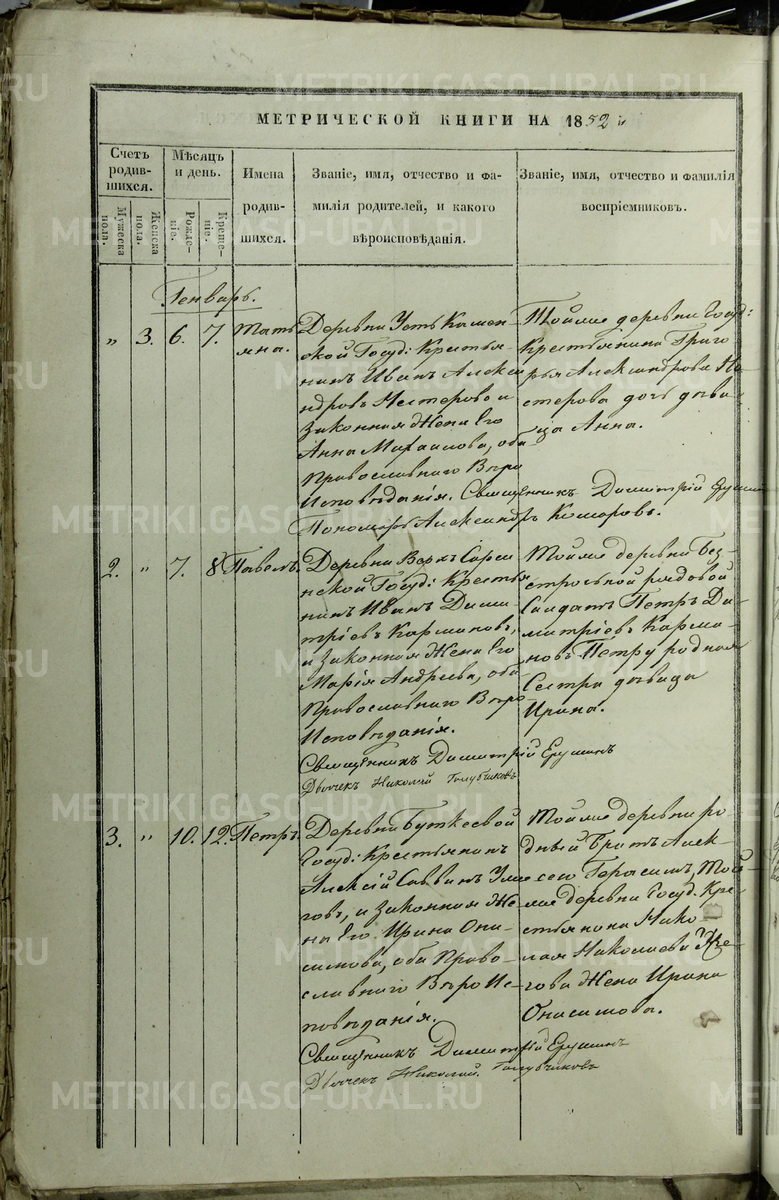 МЕТРИЧЕСКОЙ КНИГИ НА 1852
Счетъ родившихся.
Мужеска пола.
Женска пола.
Мѣсяцъ и день.
Рожденіе.
Крещеніе.
Имена родившихся.
Званіе, имя, отчество и фамилія родителей, и какого вѣроисповѣданія.
Званіе, имя, отчество и фамилія воспріемниковъ.
Генварь.
" 3. 6. 7. Татьяна.
Деревни Усть Камен
ской Госуд: Крестья
нинъ Иванъ Алекса
ндровъ Нестеровъ и
Законная Жена Его
Анна Михаилова, оба
Православнаго Вѣро
Исповѣданія. Священникъ Димитрій
Пономарь Александръ Комаровъ.
Тойже деревни Госуд:
Крестьянина Григо
рья Александрова Не
стерова дочь дѣви
ца Анна.
2. " 7. 8 Павелъ.
Деревни Верхъ Сари
нской Госуд: Крестья
нинъ Иванъ Дими
тріевъ Кармановъ,
и Законная Жена Его
Марія Андреева, оба
Православнаго Вѣро
Исповѣданія.
Священникъ Димитрій
Дьячекъ Николай Голубчиковъ
Тойже деревни Без
рядовой
Солдатъ Петръ Ди
митріевъ Карма
новъ Петру родная
Сестра дѣвица
Ирина.
3. " 10. 12. Петръ.
Деревни Буткеевой
Госуд: Крестьянинъ
Алексій Саввинъ
говъ, и Законная Же
на Его Ирина Они
симова, оба Право
славнаго Вѣро Ис
повѣданія.
Священникъ Димитрій
Дьячекъ Николай Голубчиковъ
Тойже деревни ро
дный Братъ Алек
сею Герасимъ, Той
же деревни Госуд: Кре
стьянина Нико
лая Николаева
гова Жена Ирина
Онисимова.
METRIKI.GASO-URAL.RU